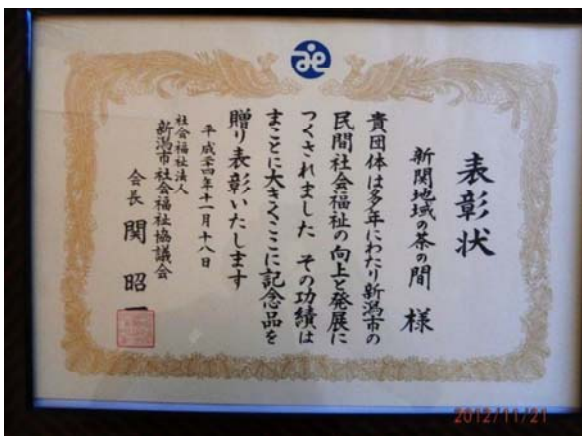 表彰状
新関地域の茶の間 様
貴団体は多年にわたり新潟市の
民間社会福祉の向上と発展に
つくされました その功績は
まことに大きくここに記念品を
贈り表彰いたします
平成二十四年十一月十八日
社会福祉法人
新潟市社会福祉協議会
会長 関 昭一
2012/11/21